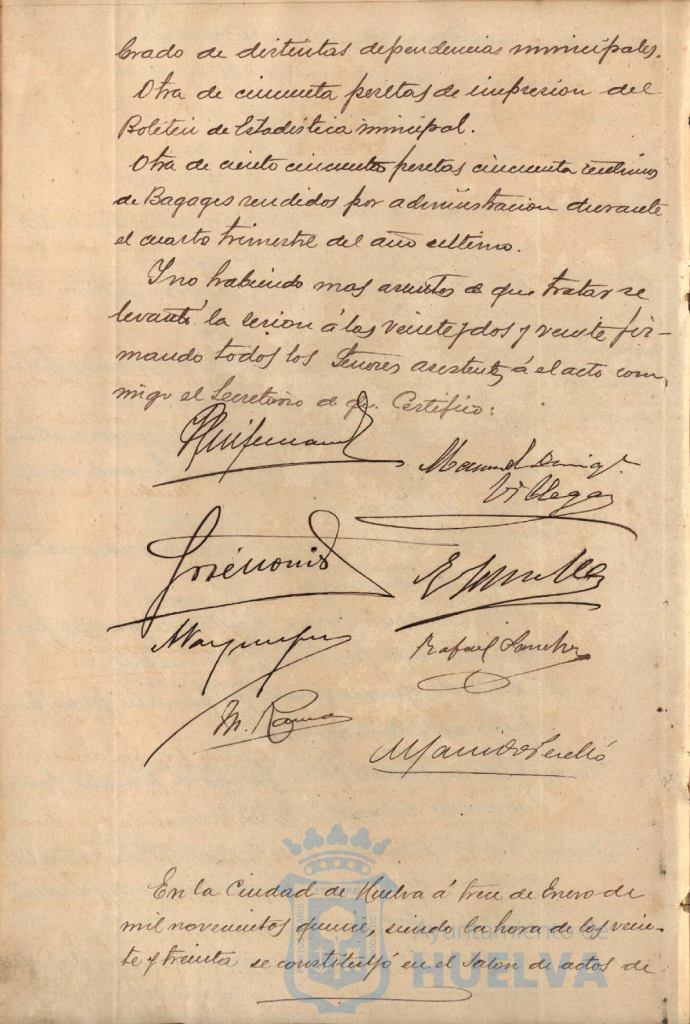 brado de distintas dependencias municipales.
Otra de cincuenta pesetas de impresion del
Boletin de Estadistica municipal.
Otra de ciento cincuenta pesetas cincuenta centimos
de Bagages rendidos por administracion durante
el cuarto trimestre del año ultimo.
Y no habiendo mas asuntos de que tratar se
levantó la sesion á las veinte y dos y veinte fir-
mando todos los Señores asistentes á el acto con-
migo el Secretario de q. Certifico:
Manuel Domigz.
Villegas
Rafael Sanchez
M.
En la Ciudad de Huelva á trece de Enero de
mil novecientos quince, siendo la hora de las vein-
te y treinta se constituyó en el Salon de actos de
Ayuntamiento de
HUELVA